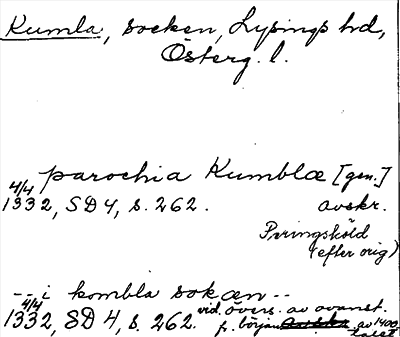 Kumla, socken, Lysings hd,
Österg. l.
parochia Kumblæ [gen.]
4/4
1332, SD 4, s. 262. avskr.
Peringsköld
(efter orig)
-- i kombla sokæn --
4/4
1332, SD 4, s. 262. vid. övers. av ovanst.
fr. början av 1400
talet